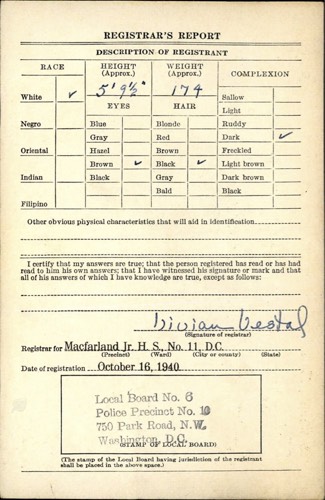 REGISTRAR'S REPORT
DESCRIPTION OF REGISTRANT
RACE HEIGHT (Approx.) WEIGHT (Approx.) COMPLEXION
White ✓ 5' 9½" 174 Sallow
Light
EYES HAIR
Negro Blue Blonde Ruddy
Gray Red Dark ✓
Oriental Hazel Brown Freckled
Brown ✓ Black ✓ Light brown
Indian Black Gray Dark brown
Bald Black
Filipino
Other obvious physical characteristics that will aid in identification
I certify that my answers are true; that the person registered has read or has had
read to him his own answers; that I have witnessed his signature or mark and that
all of his answers of which I have knowledge are true, except as follows:
Vivian Vestal
(Signature of registrar)
Registrar for Macfarland Jr. H. S., No. 11, D.C.
(Precinct) (Ward) (City or county) (State)
Date of registration October 16, 1940
Local Board No. 6
Police Precinct No. 10
750 Park Road, N.W.
Washington, D.C.
(STAMP OF LOCAL BOARD)
(The stamp of the Local Board having jurisdiction of the registrant
shall be placed in the above space.)